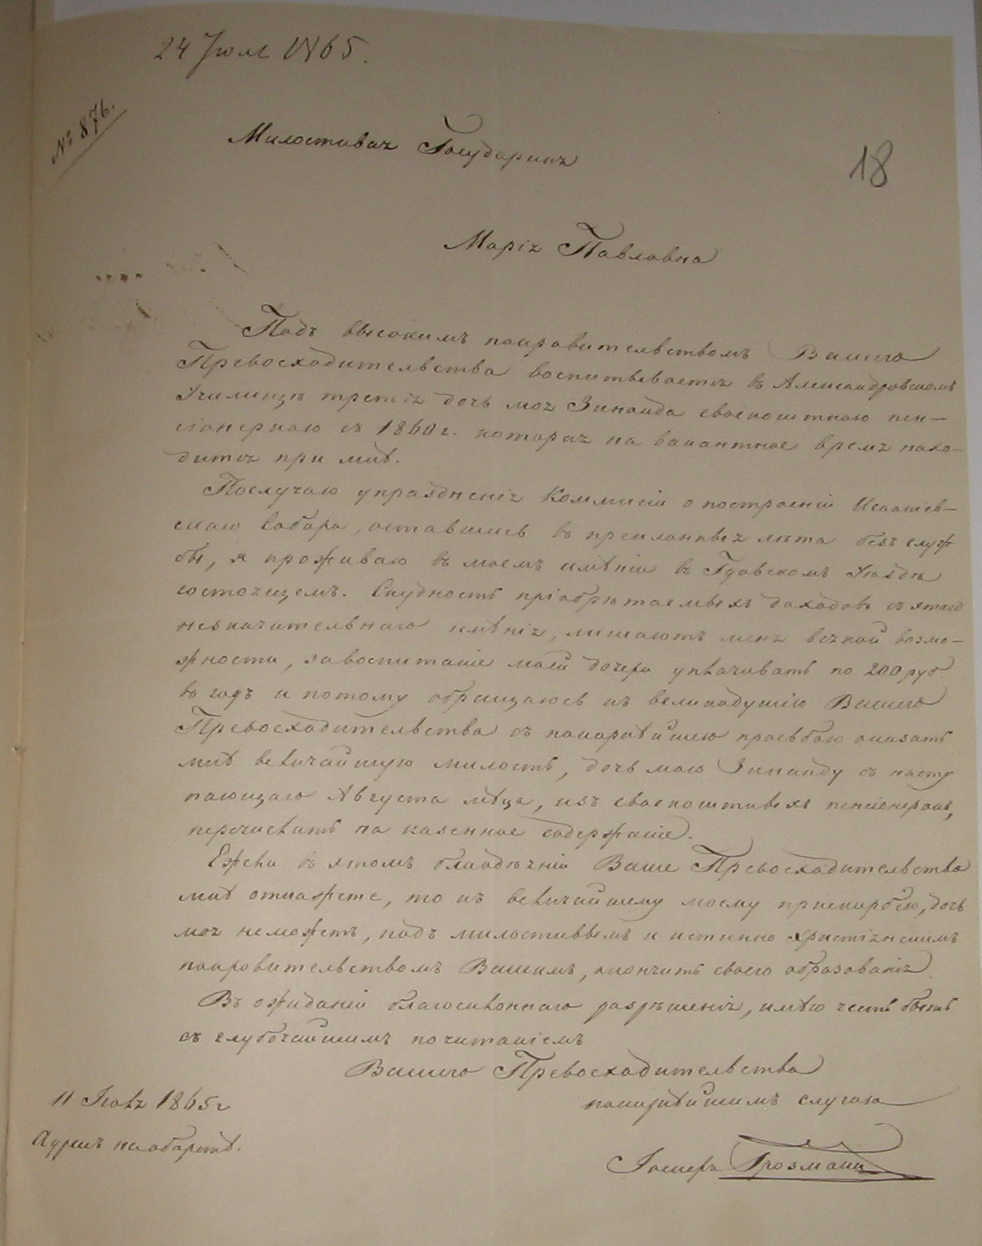 24 Іюля 1865.
№ 876.
Милостивая Государыня
18
Марія Павловна
Подъ высокимъ покровительствомъ Вашего
Превосходительства воспитывается въ Александровскомъ
Училищѣ третія дочь моя Зинаида своекоштною пен-
сіонеркою съ 1860 г. которая на вакантное время нахо-
дится при мнѣ.
Послучаю упраздненія Коммисіи о построеніи Исаакіев-
скаго Собора, оставшись въ преклонныхъ лѣта безъ служ
бы, я проживаю въ моемъ имѣніи въ Гдовскомъ Уѣздѣ
состоящемъ. Скудность пріобрѣтаемыхъ доходовъ съ этаго
незначительнаго имѣнія, лишаютъ меня всякой возмо-
жности, за воспитаніе моей дочери уплачивать по 200 руб
въ годъ и потому обращаюсь къ великодушію Вашего
Превосходительства съ покорнѣйшею прозьбою оказать
мнѣ величайшую милость, дочь мою Зинаиду съ насту
пающаго Августа мѣца, изъ своекоштныхъ пенсіонерокъ,
перечислить на казенное содержаніе.
Ежели въ этомъ благодѣяніи Ваше Превосходительство
мнѣ откажете, то къ величайшему моему прискорбію, дочь
моя неможетъ, подъ милостивымъ и истинно христіянскимъ
покровительствомъ Вашимъ, окончить своего образованія.
Въ ожиданіи благосклоннаго разрѣшенія, имѣю честь быть
съ глубочайшимъ почитаніемъ
Вашего Превосходительства
покорнѣйшимъ слугою
11 Іюля 1865 г
Адресъ на оборотѣ.
Іосифъ Грозмани